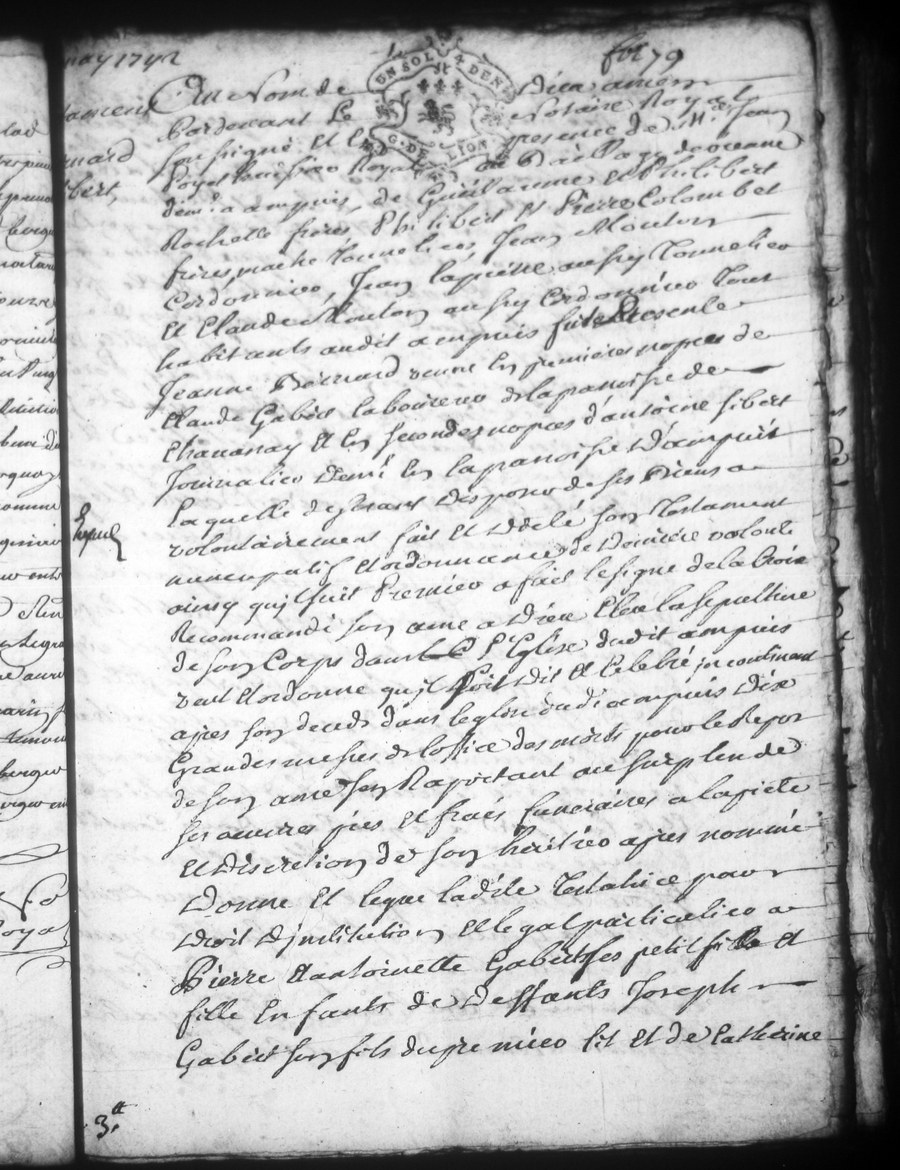 may 1742
fol 79
Au Nom de Dieu amen
Pardevant Le Notaire Royal
Soussigné et En presence de Me Jean
Poyet huissier Royal au Bailliage de vienne
demt a ampuis, de Guillaume et Philibert
Rochette freres Philibert et Pierre Colombet
freres maitre Tonneliers Jean Mouton
Cordonnier, Jean lapierre aussy Tonnelier
et Claude Mouton aussy Cordonnier Tous
habitants audit ampuis fut Presente
Jeanne Bernard veuve En premieres nopces de
Claude Gabert laboureur de la paroisse de
Chavanay et En secondes nopces d'antoine Jibert
Journalier Demt En la paroisse D'ampuis
Laquelle desirant Disposer de ses Biens a
volontairement fait et Dicté son Testament
nuncupatif et ordonnance de Derniere volonté
ainsy qu'il suit Premier a fait le signe de la Croix
Recommandé son ame a Dieu Elu la sepulture
de son Corps dans L'Eglise dudit ampuis
veut et ordonne qu'il soit Dit et Celebré incontinant
apres son deceds dans leglise dudit ampuis Dix
Grandes messes de loffice des morts pour le Repos
de son ame sen Raportant au surplus de
ses œuvres pies et frais funeraires a la pieté
et Discretion de son heritier apres nommé
Donne et legue ladite Testatrice pour
Droit d'institution et legat particulier a
Pierre et antoinette Gabert ses petit fils et
fille Enfants de Deffunts Joseph
Gabert son fils du premier lit et de Catherine
3.tt